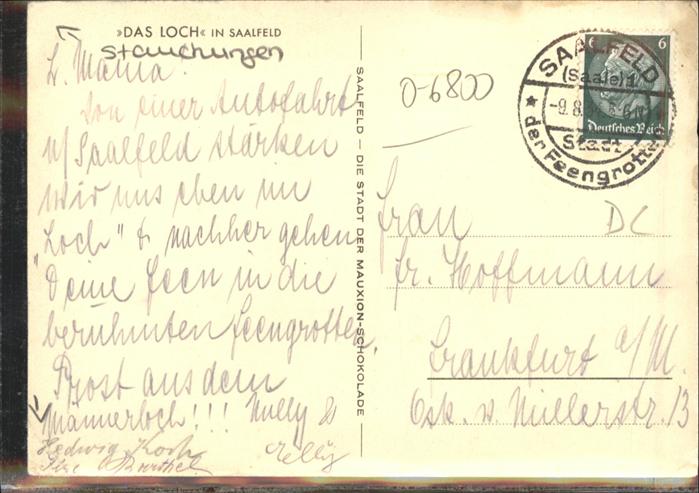 »DAS LOCH« IN SAALFELD
stauchungen
L. Mama.
Von einer Autofahrt
n/ Saalfeld stärken
wir uns eben im
"Loch" & nachher gehen
Deine Feen in die
berühmten Feengrotten.
Prost aus dem
Männerloch!!! Nully &
Hedwig Koch
Nelly
Ilse
SAALFELD — DIE STADT DER MAUXION-SCHOKOLADE
0-6800
SAALFELD
(Saale) 1
-9.8.
Stadt
* der Feengrotten
6 6
Deutsches Reich
DC
Frau
Fr. Hoffmann
Frankfurt a/M.
Osk. v. Millerstr. 13